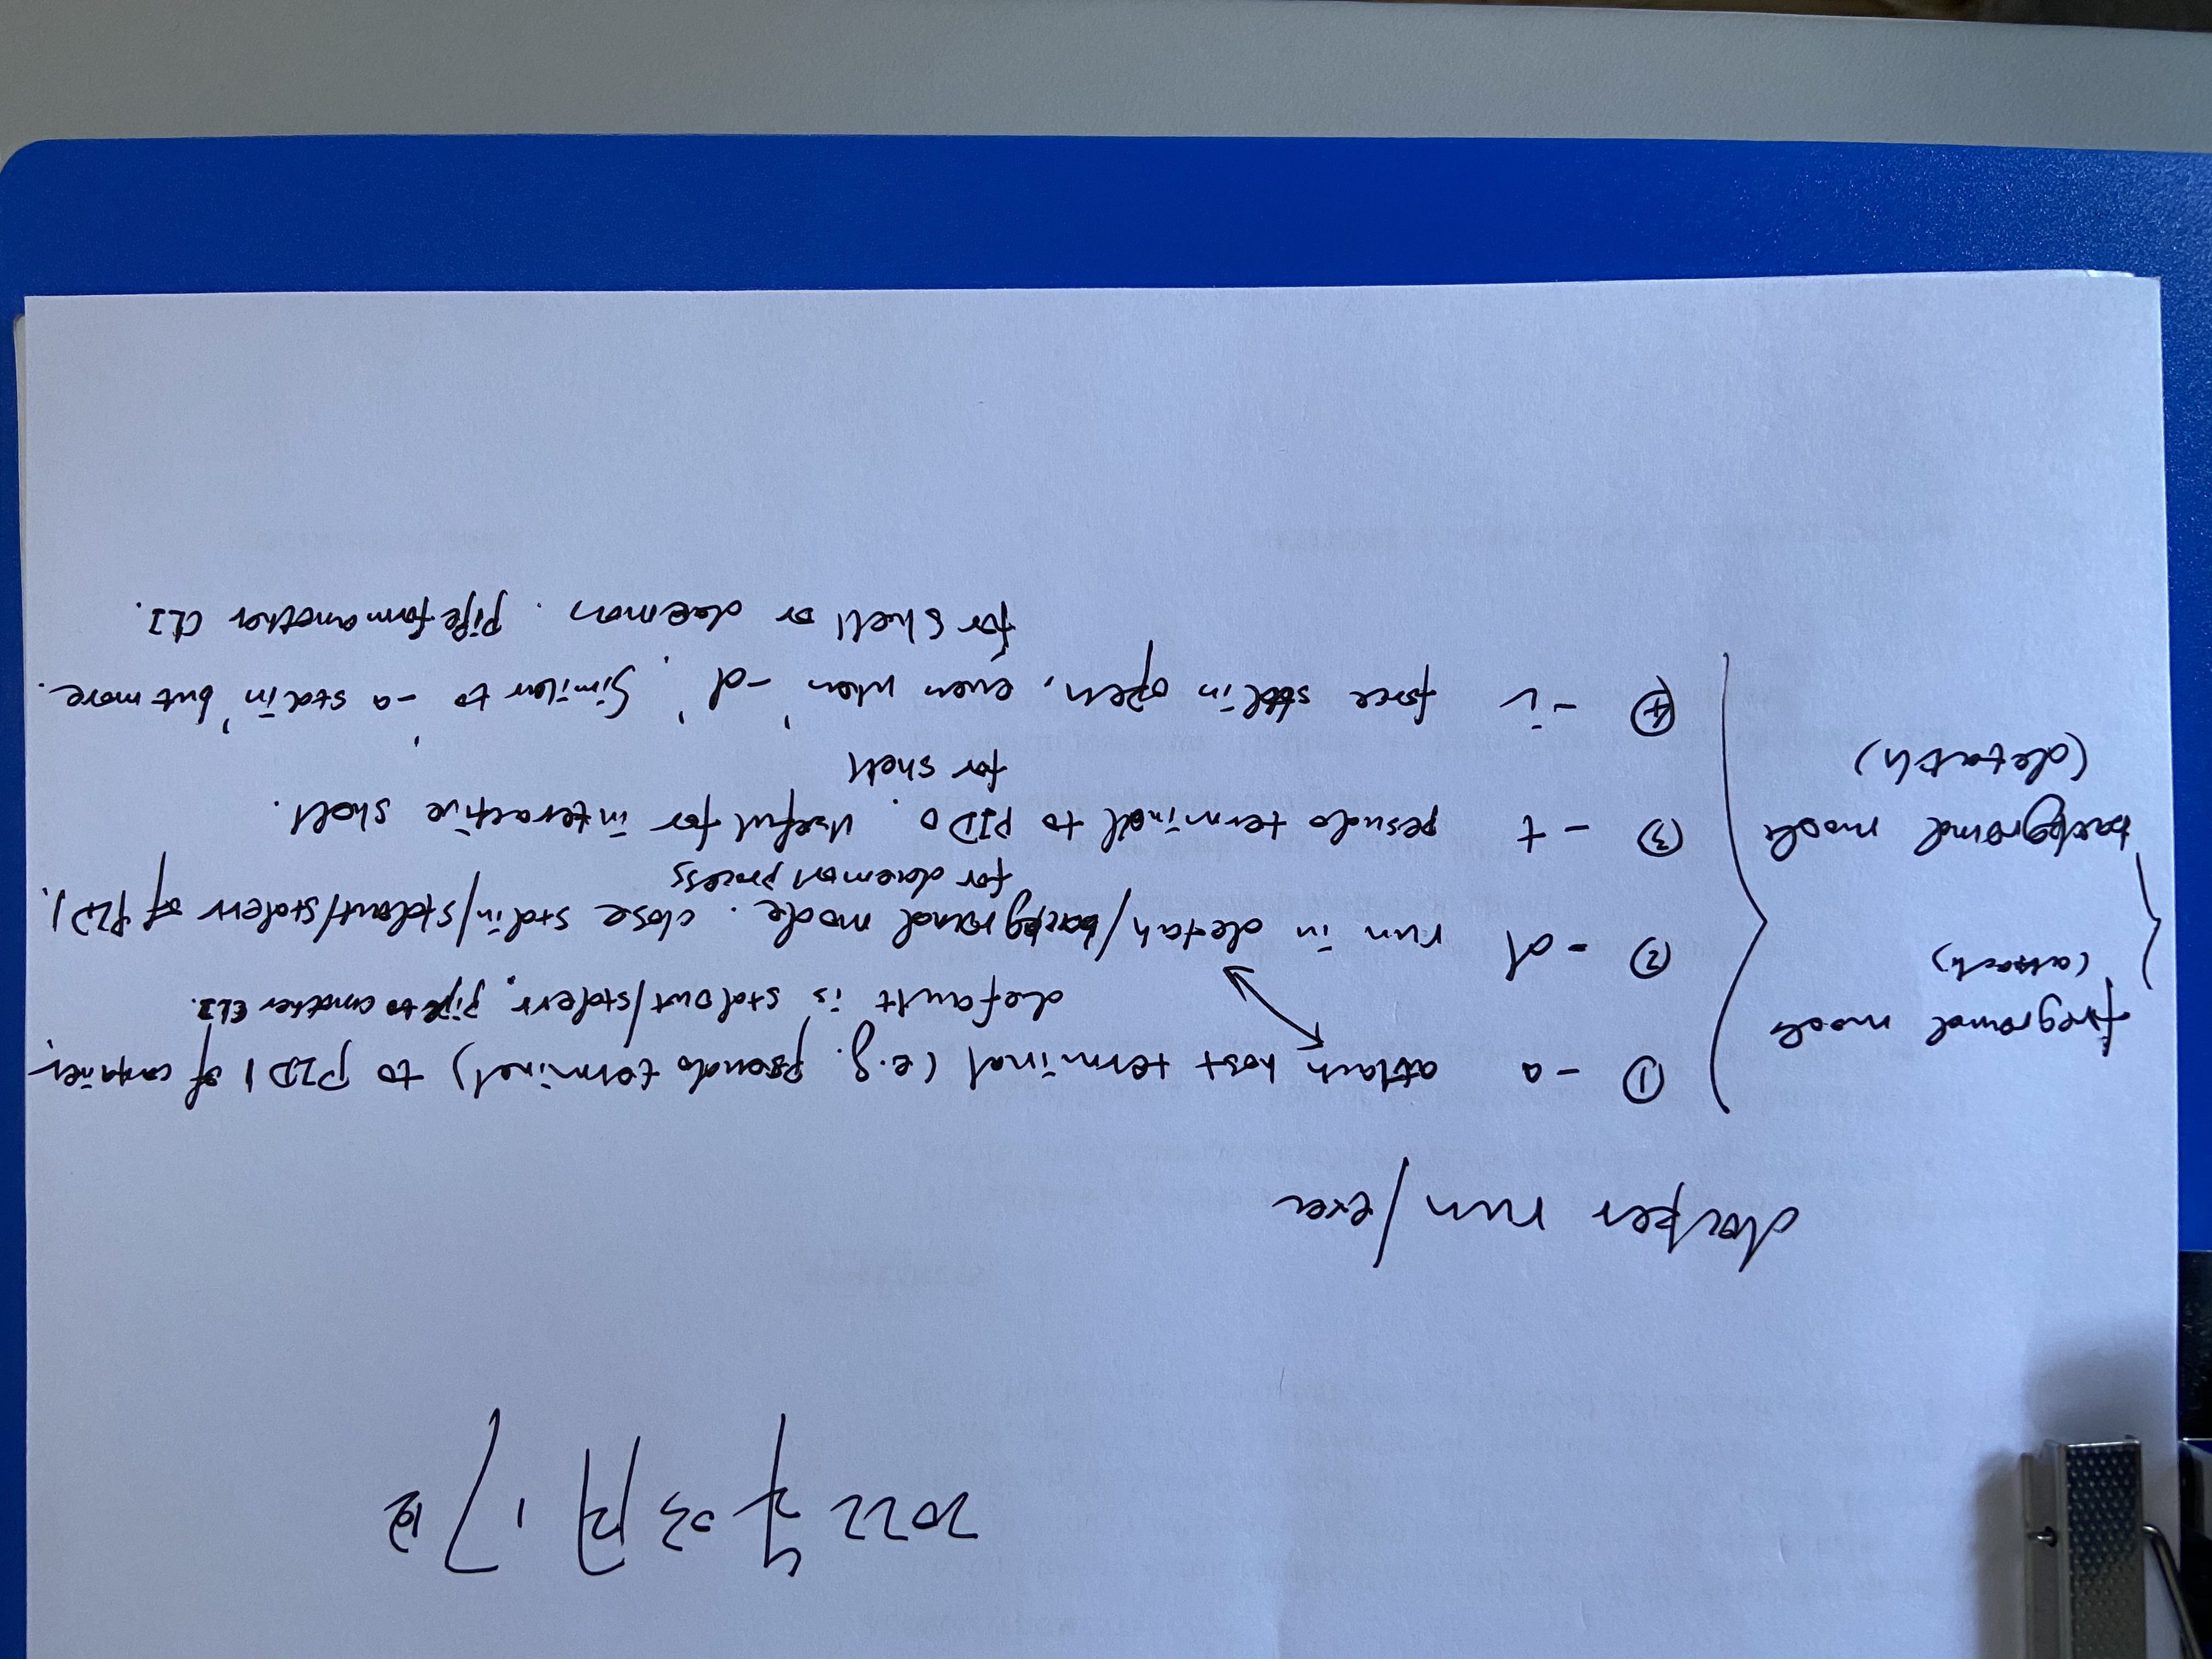 2022年03月17日
docker run/exec
foreground mode
(attach)
background mode
(detatch)
① -a attach host terminal (e.g. pseudo terminel) to PID1 of container.
default is stdout/stderr. pipe to another CLI.
② -d run in detach/background mode. close stdin/stdout/stderr of PID1.
for daemon process
③ -t pesudo terminal to PID0. useful for interactive shell.
for shell
④ -i force stdin open, even when '-d'. Similar to '-a stdin' but more.
for shell or daemon. pipe form another CLI.